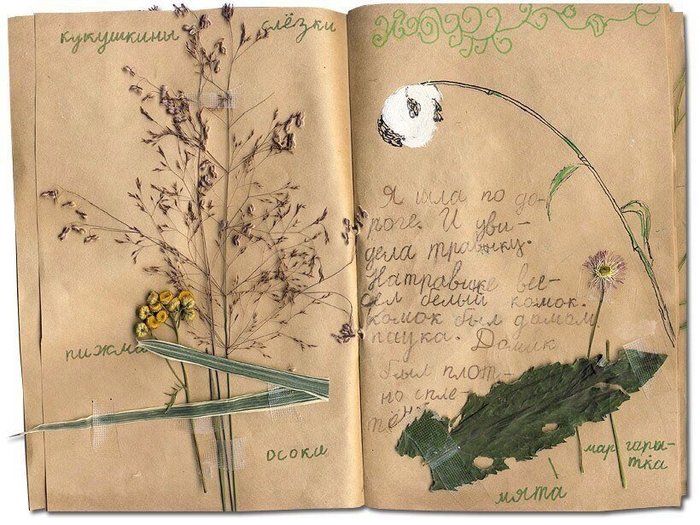 кукушкины слёзки
пижма
осоки
Я шла по до-
роге. И уви-
дела травинку.
На травинке ве-
сел белый комок.
Комок был домом
паука. Домик
был плот-
но спле-
тен.
маргары-
тка
мята